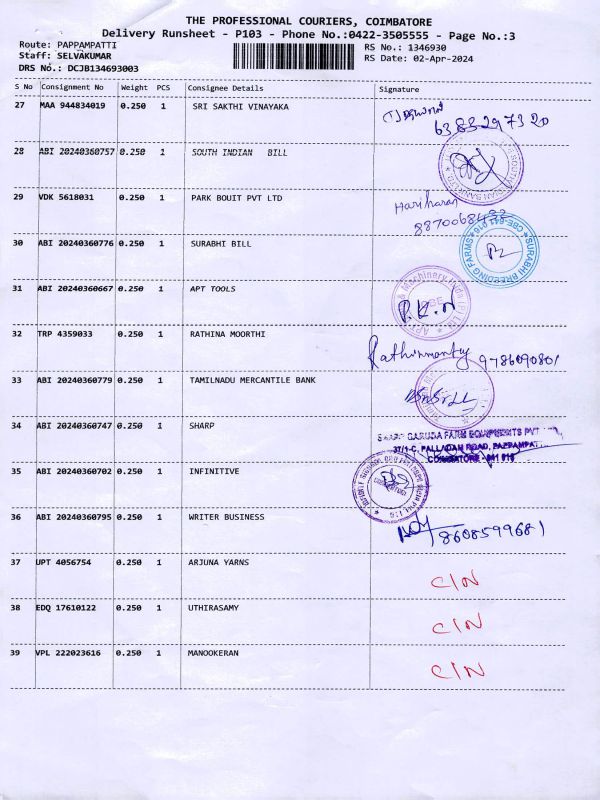 THE PROFESSIONAL COURIERS, COIMBATORE
Delivery Runsheet - P103 - Phone No.:0422-3505555 - Page No.:3
Route: PAPPAMPATTI
Staff: SELVAKUMAR
DRS No.: DCJB134693003
RS No.: 1346930
RS Date: 02-Apr-2024
S No Consignment No Weight PCS Consignee Details Signature
27 MAA 944834019 0.250 1 SRI SAKTHI VINAYAKA
6383297320
28 ABI 20240360757 0.250 1 SOUTH INDIAN BILL
29 VDK 5618031 0.250 1 PARK BOUIT PVT LTD Hariharan
30 ABI 20240360776 0.250 1 SURABHI BILL
SURABHI BREEDING FARMS CBE-641 016
31 ABI 20240360667 0.250 1 APT TOOLS P.K.N
32 TRP 4359033 0.250 1 RATHINA MOORTHI
33 ABI 20240360779 0.250 1 TAMILNADU MERCANTILE BANK
34 ABI 20240360747 0.250 1 SHARP
SHARP GARUDA FARM EQUIPMENTS PVT
37/1-C, PALLADAM ROAD, PAPPAMPATTI
COIMBATORE - 641 016
35 ABI 20240360702 0.250 1 INFINITIVE
36 ABI 20240360795 0.250 1 WRITER BUSINESS
8608599681
37 UPT 4056754 0.250 1 ARJUNA YARNS C/N
38 EDQ 17610122 0.250 1 UTHIRASAMY C/N
39 VPL 222023616 0.250 1 MANOOKERAN C/N